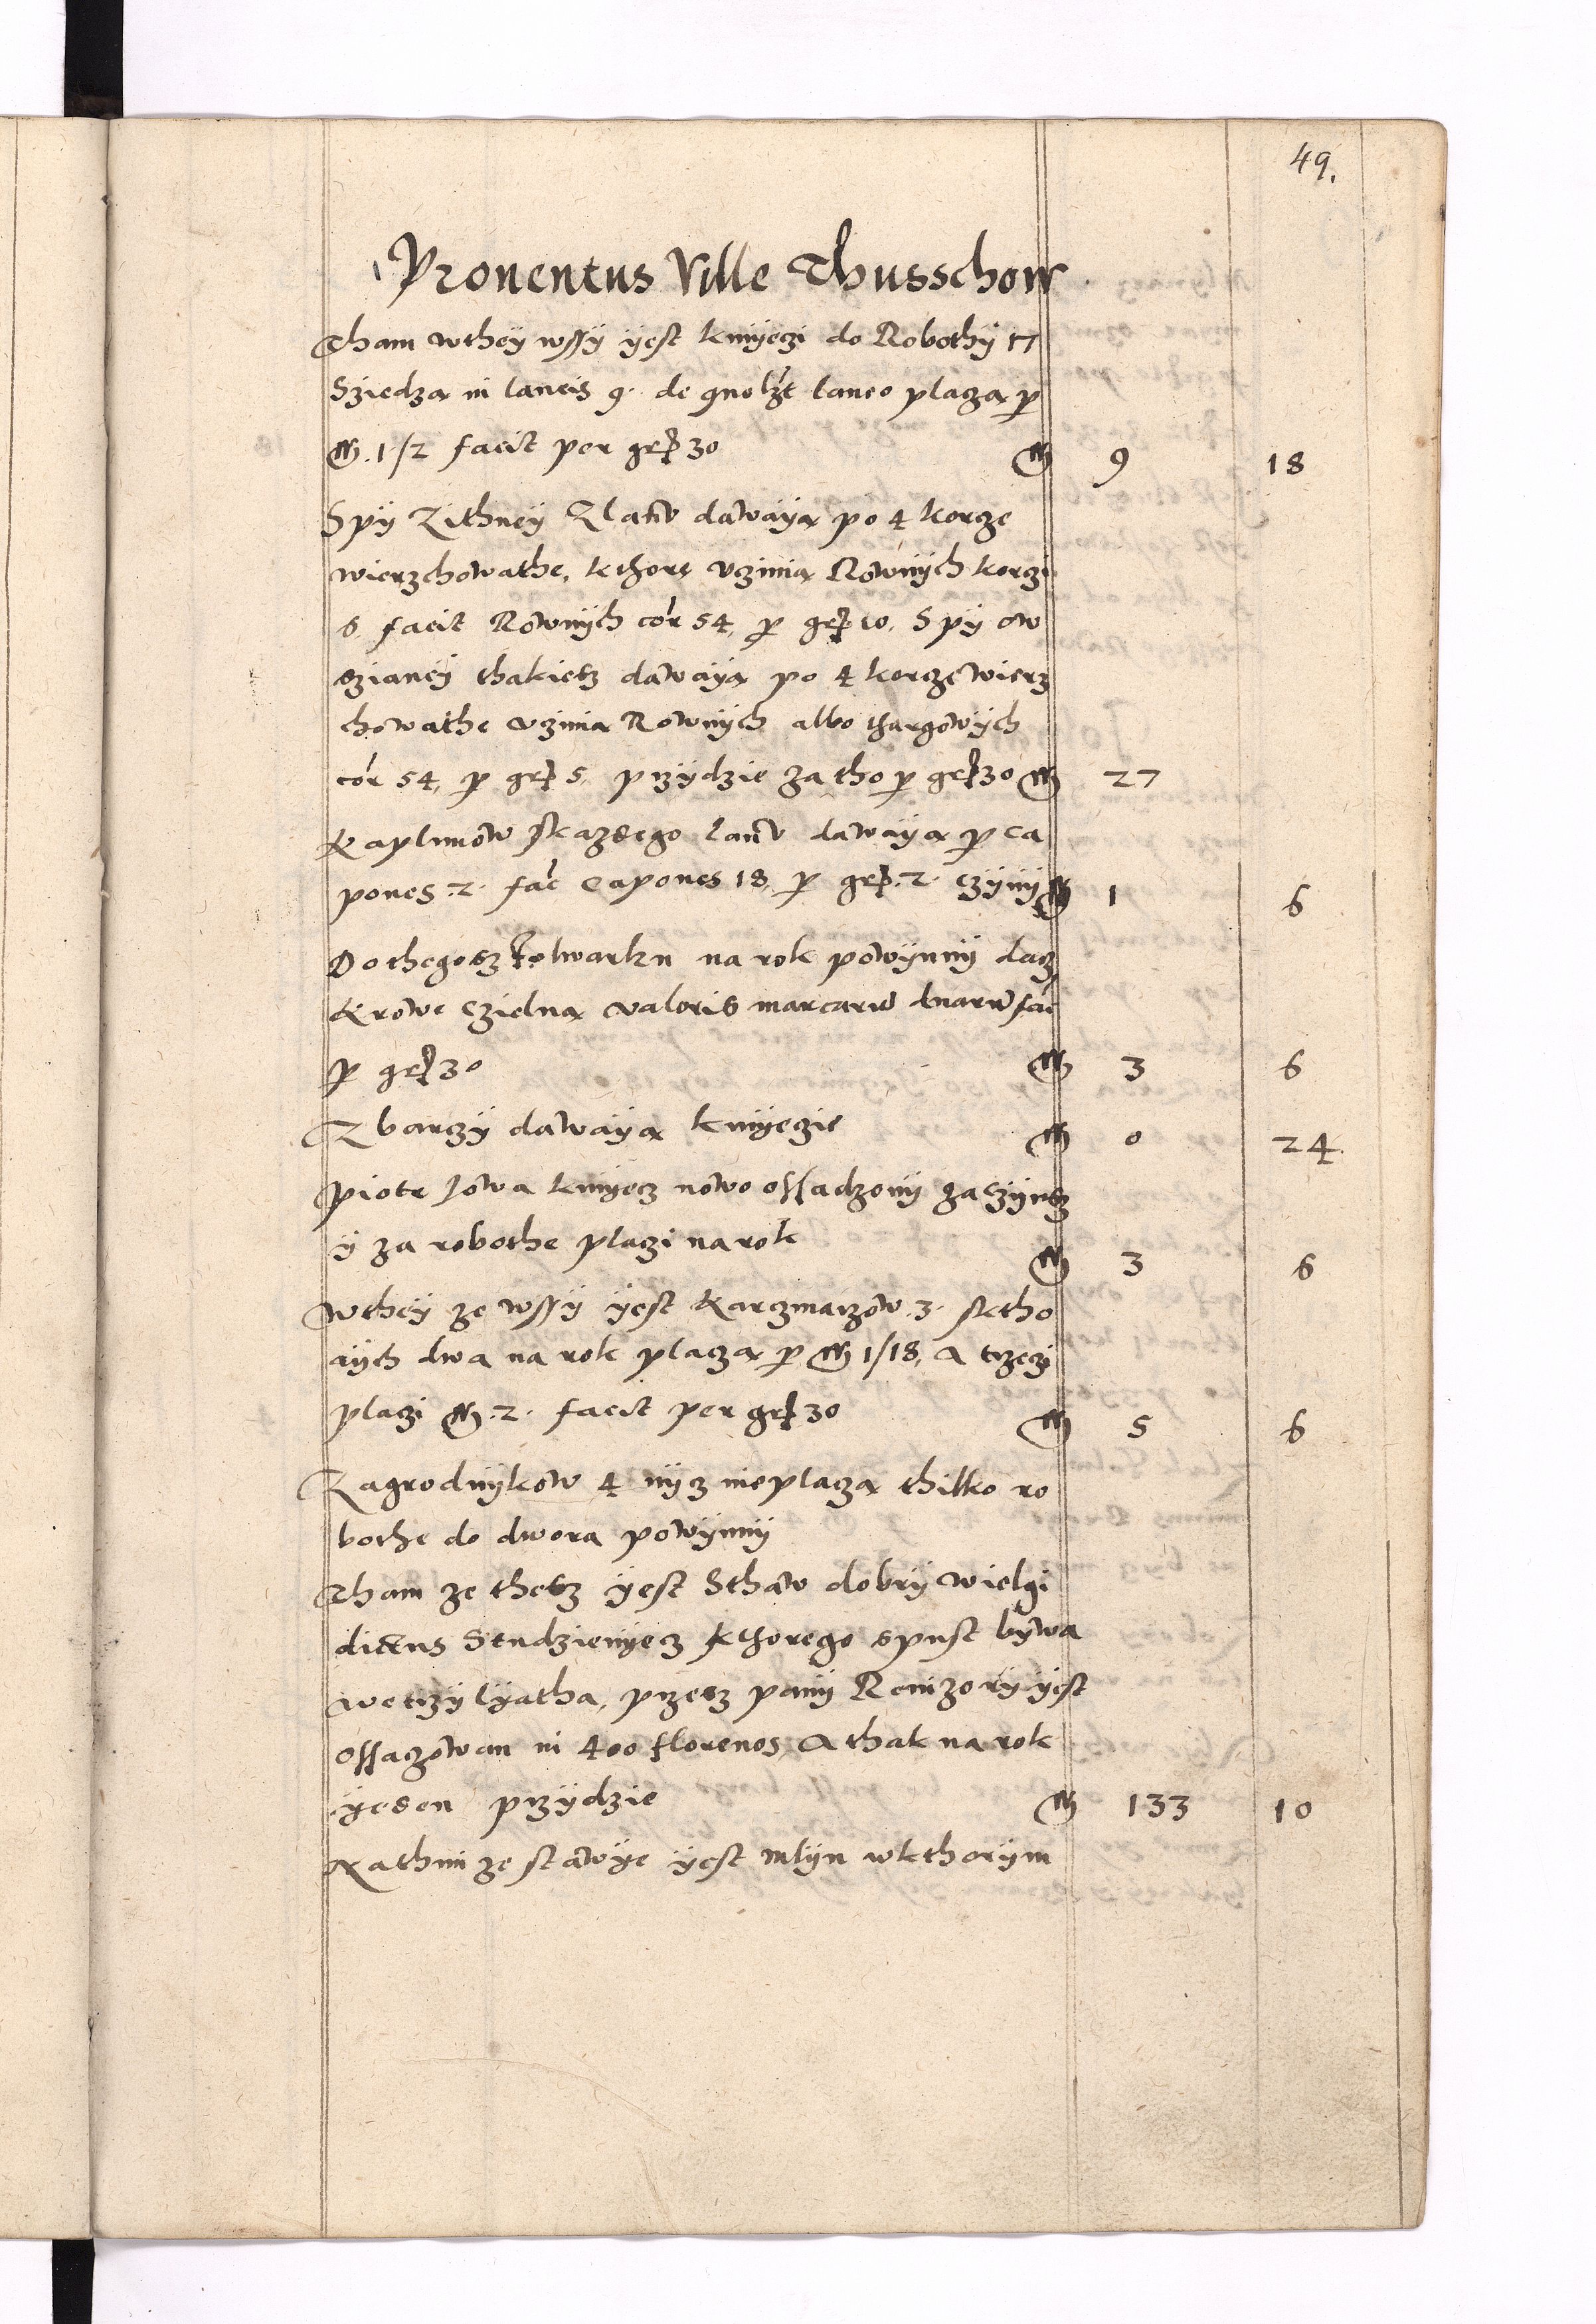 49.
Prouentus Ville Thusschow
Tham wthey wssy yest kmyeczi do Robothy 17
Sziedza in laneis 9. de quolzt laneo placza p
M. 1/2 facit per grꝭ 30 M 9 18
Spy Zithney Zlanv dawaya po 4 korcze
wierzchowathe, kthore vczinia Rownych korczi
6 facit Rownych cor 54, p grꝭ 10, Spy ow
szianey thakiesz dawaya po 4 korcze wierz
chowathe vczinia Rownych albo thargowych
cor 54, p grꝭ 5, przydzie za tho p grꝭ 30 M 27
Kaplunow skazdego lanv dawaya p ca
pones .2. fac Capones 18, p grꝭ .2. czyny M 1 6
Do thegosz folwarku na rok powynny dacz
Krowe czielna valoris marcarum duarum fac
p grꝭ 30 M 3 6
Z barczy dawaya kmyeczie M 0 24
Piotr Sowa kmyecz nowo ossadzony za czynsz
y za robothe placzi na rok M 3 6
wthey ze wssy yest Karczmarzow .3. sktho
rych dwa na rok placza p M 1/18, a trzeczi
placzi M .2. facit per grꝭ 30 M 5 6
Zagrodnykow 4 nycz nieplacza thilko ro
bothe do dwora powynny
Tham ze thesz yest Sthaw dobry wielgi
dictus Studzienyecz kthorego spust bywa
we trzy lyatha, przesz pany Reuizory yest
ossaczowan in 400 florenos, A thak na rok
yeden przydzie M 133 10
Nathim ze stawye yest mlyn wkthorym